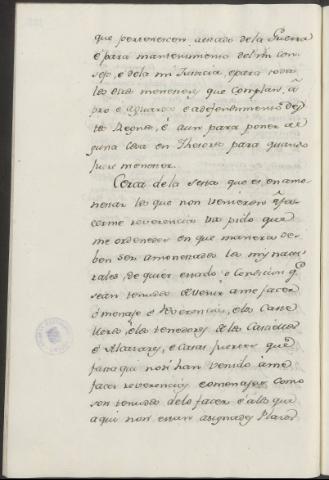 que pertenescen aestado dela Guerra
é para mantenimiento del mi con-
sejo, é dela mi Justicia, epara todas
las otras menesteres que complan, á
pro é aguarda é adefendimiento des-
tos Regnos, é aun para poner al-
guna cosa en Thesoro para quando
fuere menester.
Cerca dela sesta que es en amo-
nestar los que non vinieron á fa-
cerme reverencia vos pido que
me ordenedes en que manera de-
ben ser amonestados los mis natu-
rales, de quier estado, é Condicion q.e
sean tenudos de venir áme facer
omenaje é Reverencia, élos Cava-
lleros, élos tenedores delos Castillos
é Alcazares, é casas fuertes que
fasta qui non han venido áme
facer reverencia, é omenajes como
son tenudos delo facer é alos que
aqui non eran asignados Plazos